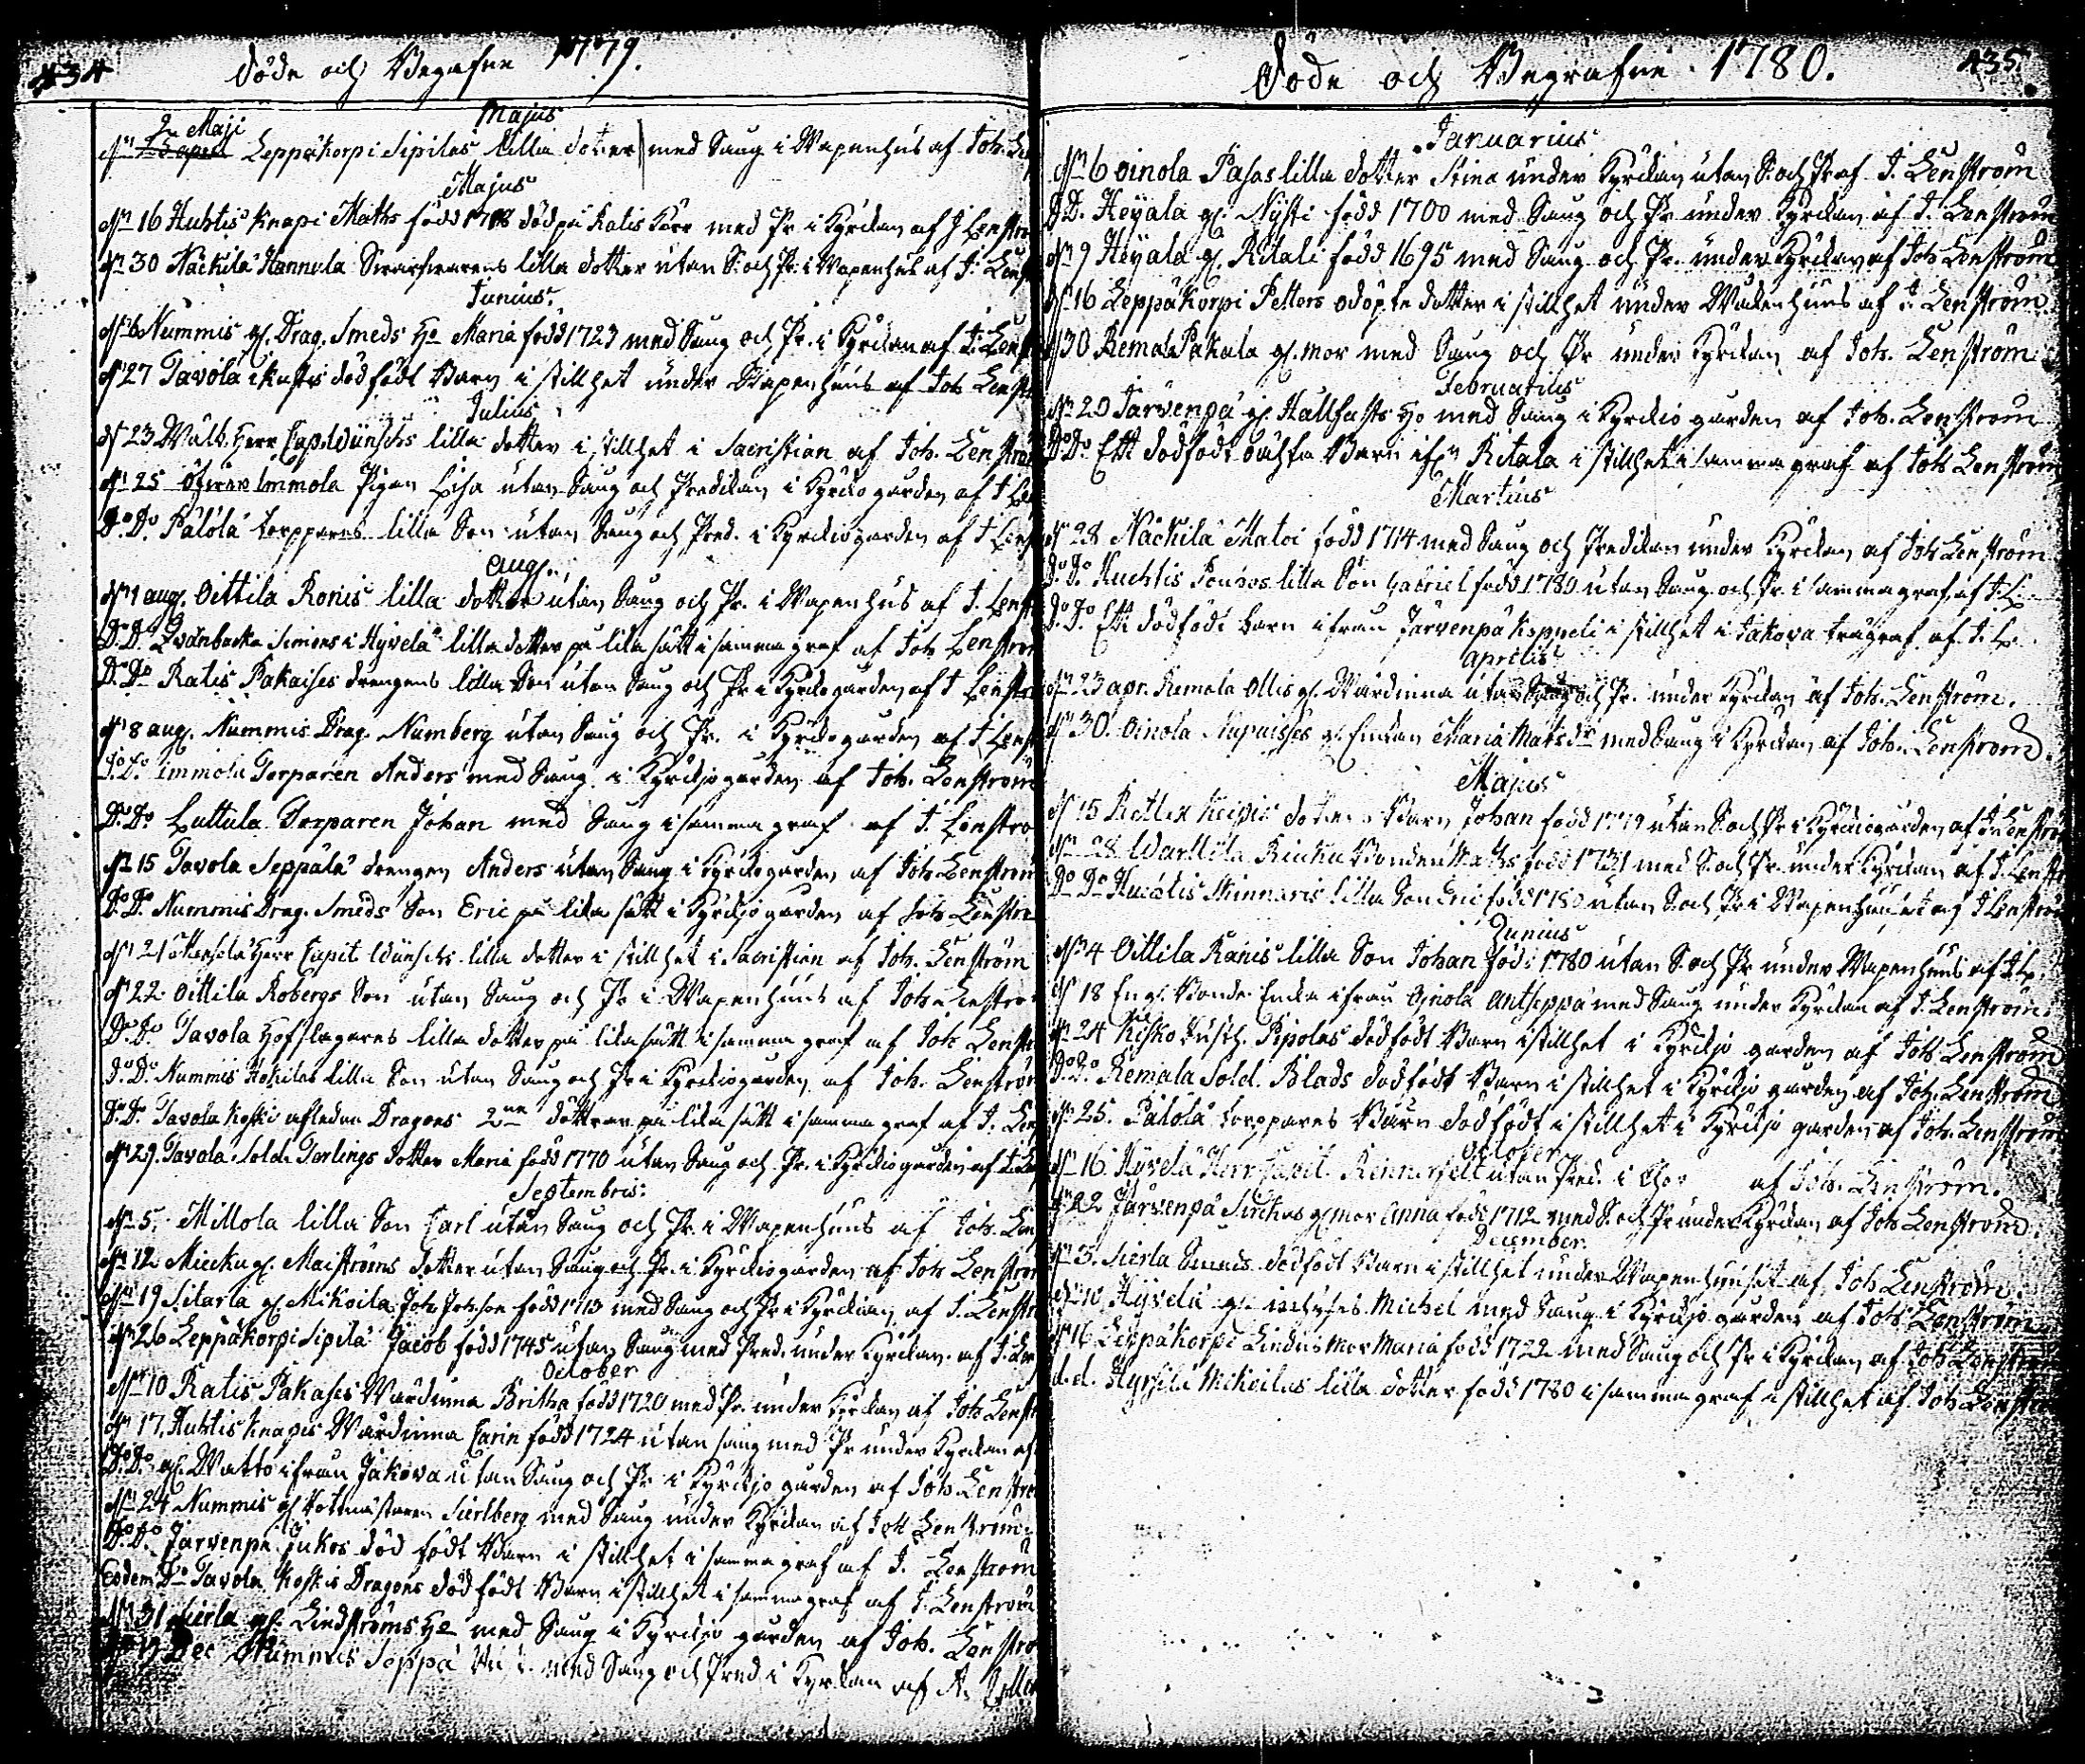 434
Döde och Begrafne 1779.
Majus
2 Maji
dn Leppäkorpi Sipilas lilla dotter med Saug i Wapenhus af Joh. Len
Majus
dn 16 Huhtis Knapi Matts född död på Ratis Kärr med Pr. i Kyrckan af J Lenstro
dn 30 Näckilä Hannula lilla dotter utan S. och Pr. i Wapenhus af J. Lens
Junius.
dn 6 Nummis gl. Drag. Smeds Ho Maria född 1723 med Saug och Pr. i Kyrckan af J. Lens
dn 27 Tavola dödfödt Barn i stillhet under Wapenhuus af Joh Lenst
Julius
dn 23 Walk. Herr Cap. Wünschs lilla dotter i stillhet i Sacristian af Joh. Lenströ
dn 25 Immola Pigan Lisa utan Saug och Predikan i Kyrckogården af J Le
Do. Do. Pälölä torppares lilla Son utan Saug och Pred. i Kyrckiogården af J Lens
Aug.
dn 1 aug. Oittila Ronis lilla dotter utan Saug och Pr. i Wapenhus af J. Lenst
Do. Do Simons i Hyvelä lilla dotter på lika sätt i samma graf af Joh Lenstrom
Do. Do Ratis Pakaises drengens lilla Son utan Saug och Pr i Kyrckogården af J Lenstr
dn 8 aug. Nummis Drag. Numberg utan Saug och Pr. i Kyrckogården af J Lens
Do. Do. Immola Torparen Anders med Saug i Kyrckjogården af Joh. Lenstrom
Do. Do Luttula Torparen Johan med Saug i samma graf af J. Lenstro
dn 15 Tavola Seppälä drengen Anders utan Saug i Kyrckogården af Joh Lenstrom
Do. Do. Nummis Drag. Smeds Son Eric på lika sätt i Kyrckjogården af Joh Lenstr
dn 21 Herr Capit Wünschs lilla dotter i stillhet i Sacristian af Joh. Lenström
dn 22. Oittila Robergs Son utan Saug och Pr i Wapenhuus af Joh. Lenstro
Do. Do. Tavola Hofslagares lilla dotter på lika sätt i samma graf af Joh Lenstr
Do. Do. Nummis Hokilas lilla Son utan Saug och Pr i Kyrckiogården af Joh. Lenström
Do. Do. Tavola Koski afledna Dragons 2ne döttrar på lika sätt i samma graf af J. Len
dn 29. Tavola Sold. Tarlings dotter Maria född 1770 utan Saug och Pr. i Kyrckiogården af J. Le
Septembris:
dn 5. Millola lilla Son Carl utan Saug och Pr. i Wapenhuus af Joh. Len
dn 12 gl. Maiströms dotter utan Saug och Pr. i Kyrckiogården af Joh Lenström
dn 19 Silarla gl. Mikoila Joh Johsson född 1713 med Saug och Pr i Kyrckian af J. Lenstr
dn 26 Leppäkorpi Sipilä Jacob född 1745 utan Saug med Pred. under Kyrckan af J. Len
October
dn 10 Ratis Pakasis Wärdinna Britha född 1720 med Pr. under Kyrckan af Joh Lenst
dn 17. Huhtis Knapis Wärdinna Carin född 1724 utan saug med Pr under Kyrckan af
Do. Do. gl. Watto ifrån Jakova utan Saug och Pr i Kyrckjo gården af Joh. Lenströ
dn 24 Nummis gl. Sierlberg med Saug under Kyrckan af Joh Lenström
Do. Do. Järvenpä Jukos död födt Barn i stillhet i samma graf af J. Lenström
Eodem Do Tavola Koskis Dragons död födt Barn i stillhet i samma graf af J. Lenström
dn 31 Sierla gl. Lindströms Ho med Saug i Kyrckjo gården af Joh. Lenstro
17 Dec Nummis Soppa med Saug och Pred. i Kyrckan af A.
435.
Döde och Begrafne 1780.
Januarius
dn 6 Oinola Pasas lilla dotter Stina under Kyrckan utan S. och Pr af J. Lenström
D. D. Heyala gl. Nysti född 1700 med Saug och Pr under Kyrckan af J. Lenström
dn 9 Heyala gl. Ritali född 1695 med Saug och Pr. under Kyrckan af Joh Lenström
dn 16 Leppäkorpi Petters odöpte dotter i stillhet under Wapenhuus af J. Lenström.
dn 30 Remala Pakala gl. mor med Saug och Pr under Kyrckan af Joh. Lenström
Februarius
dn 20 Järvenpä gl. Hallfasts Ho med Saug i Kyrckio gården af Joh. Lenström
Do. Do. Ett dödfödt oächta Barn ifrn Ritala i stillhet i samma graf af Joh Lenström
Martius
dn 28 Näckilä Matoi född 1714 med Saug och Predikan under Kyrckan af Joh Lenström
Do. Do. Huchtis lilla Son Gabriel född 1780 utan Saug och Pr. i samma graf af J. L.
Do. Do. Ett dödfödt barn ifrån Järvenpä Koppeli i stillhet i Jakova af J. Le
Aprilis
dn 23 apr. Remala Ollis gl. Wärdinna utan Saug och Pr. under Kyrckan af Joh. Lenström.
dn 30. Oinola gl. Enckan Maria Matsdr med Saug i Kyrckan af Joh. Lenström.
Majus
dn 15 Barn Johan född 1779 utan S. och Pr i Kyrckiogården af J. Lenströ
dn 28 Bonden Matts född 1731 med S. och Pr. under Kyrckan af J. Lenst
Do Do lilla Son Eric född 1780 utan S. och Pr i Wapenhuuset af J Lenström
Junius
dn 4 Oittila Ranis lilla Son Johan född 1780 utan S. och Pr under Wapenhuus af J L.
dn 18 En gl. Bonde Encka ifrån Ojnola Antseppä med Saug under Kyrckan af J. Lenström.
dn 24 Kisko Pipolas dödfödt Barn i stillhet i Kyrckjo gården af Joh Lenström
Do. Do. Remala Sold. Blads dödfödt Barn i stillhet i Kyrckjo gården af Joh. Lenström
dn 25. Pälölä torppares Barn dödfödt i stillhet i Kyrckjo gården af Joh. Lenström
October
dn 16. Hyvelä Herr Capit. utan Pred. i Chor af Joh. Lenström.
dn 22 Järvenpä gl mor Anna född 1712 med S. och Pr under Kyrckan af Joh Lenström.
December.
dn 3. Sierla Smeds dödfödt Barn i stillhet under Wapenhuuset af Joh Lenström.
dn 10 Hyvelä gl. Michel med Saug i Kyrckjo gården af Joh Lenström
dn 16 Leppäkorpi Lindus mor Maria född 1722 med Saug och Pr i Kyrckan af Joh Lenström
d. d. Mikoilas lilla dotter född 1780 i samma graf i stillhet af Joh Lenstrom